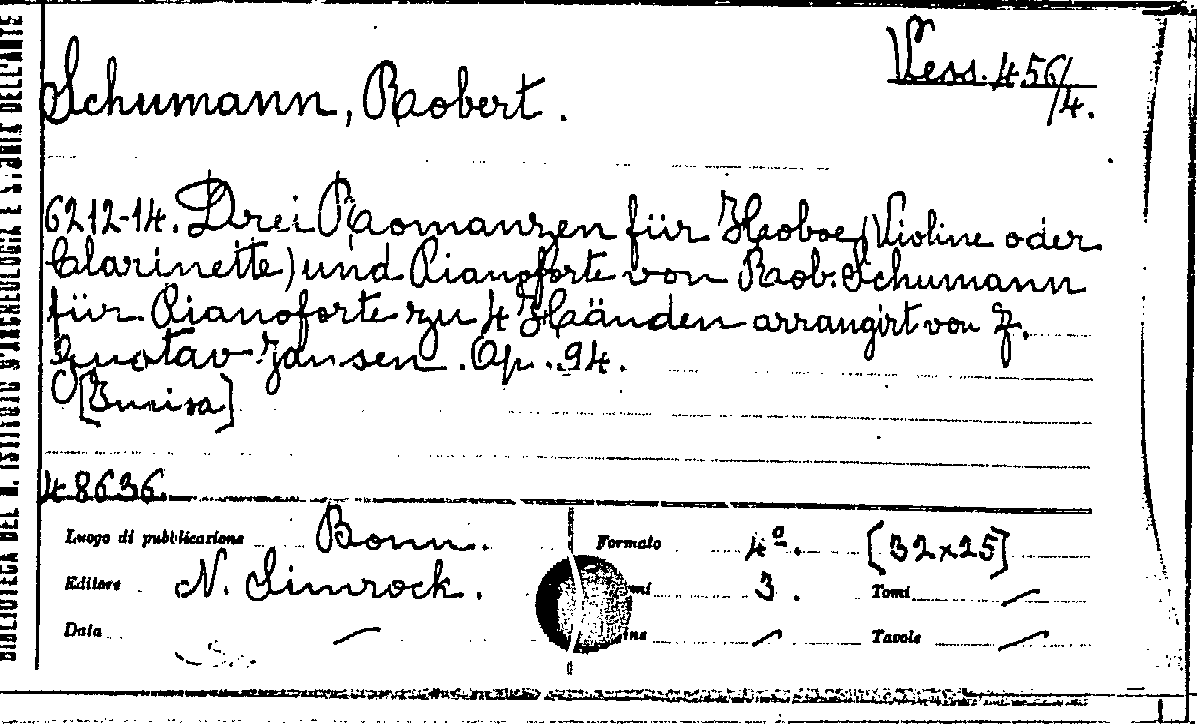 BIBLIOTECA DEL R. ISTITUTO D'ARCHEOLOGIA E STORIA DELL'ARTE
Schumann, Robert.
Vess. 456/4.
6212-14. Drei Romanzen für Hoboe (Violine oder
Clarinette) und Pianoforte von Rob. Schumann
für Pianoforte zu 4 Händen arrangirt von F.
Gustav Jansen. Op. 94.
48636.
Luogo di pubblicazione Bonn. Formato 4º. [32x25]
Editore N. Simrock. mi 3. Tomi —
Data — ine — Tavole —